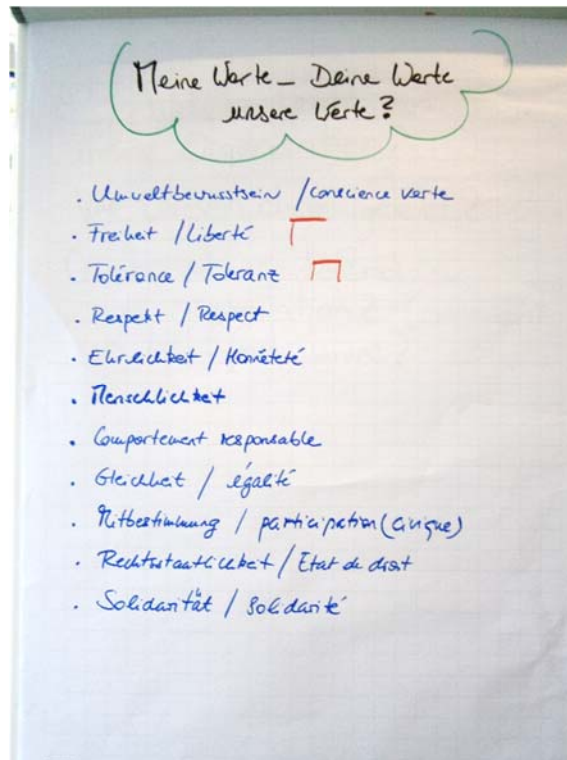 Meine Werte - Deine Werte
unsere Werte?
. Umweltbewusstsein / conscience verte
. Freiheit / Liberté
. Tolérance / Toleranz
. Respekt / Respect
. Ehrlichkeit / Honnêteté
. Menschlichkeit
. Comportement responsable
. Gleichheit / égalité
. Mitbestimmung / participation (civique)
. Rechtsstaatlichkeit / Etat de droit
. Solidarität / solidarité